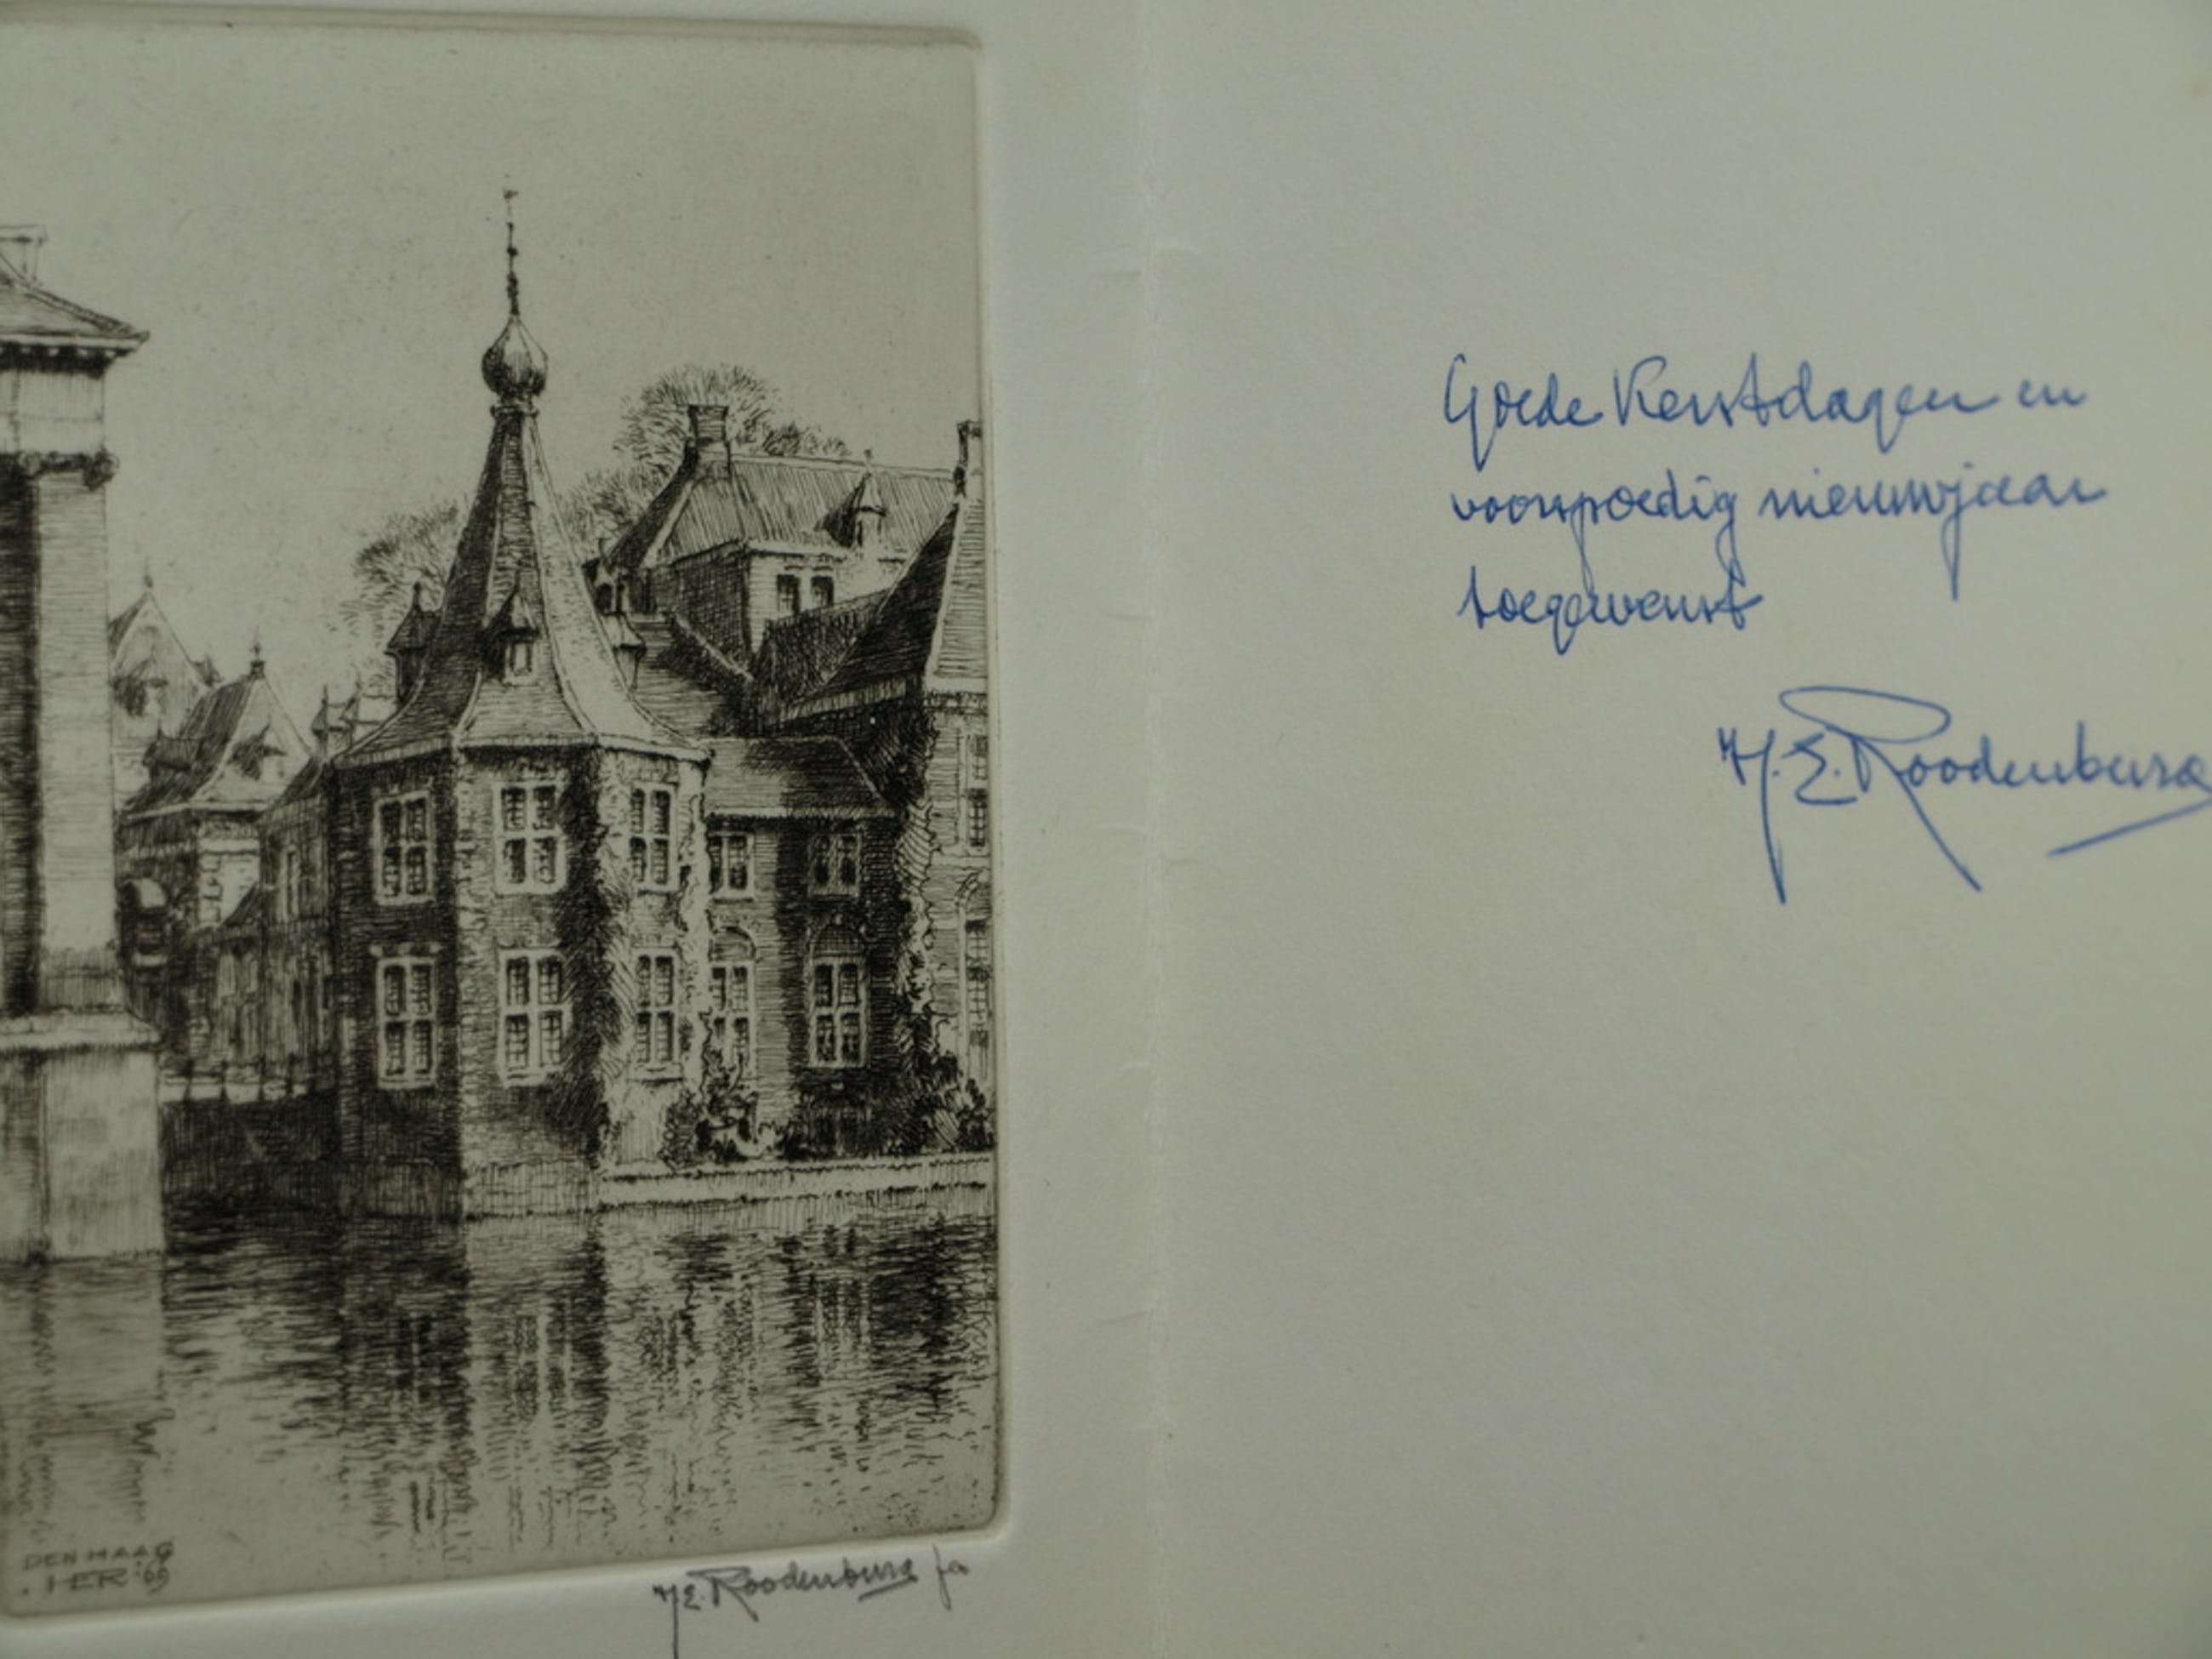 Goede Kerstdagen en
voorspoedig nieuwjaar
toegewenst
H.E. Roodenburg
DEN HAAG
HER '69
H.E. Roodenburg fec